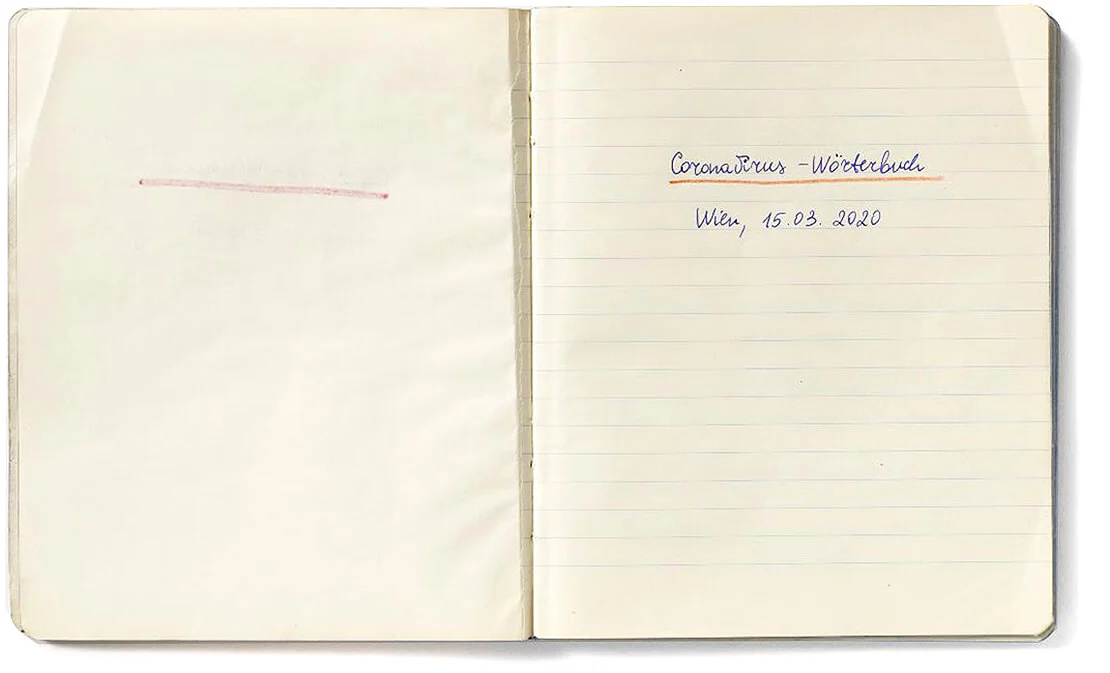 Coronavirus - Wörterbuch
Wien, 15.03. 2020